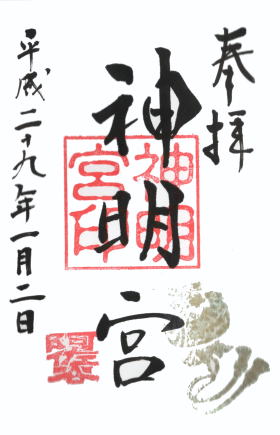 奉拝
神明宮
神明
宮印
平成二十九年一月二日